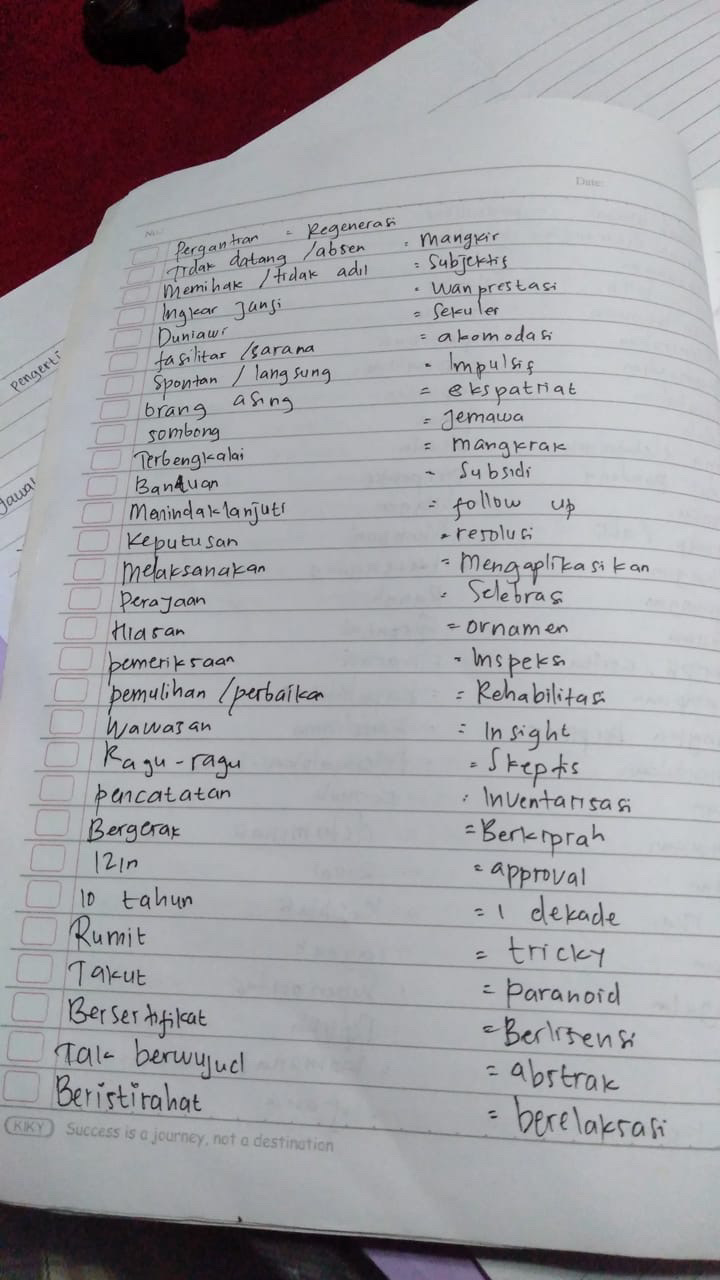 No.:
Date:
Pergantian = Regenerasi
Tidak datang / absen = mangkir
Memihak / tidak adil = Subjektif
Ingkar janji = Wanprestasi
Duniawi = Sekuler
fasilitas / sarana = akomodasi
Spontan / langsung = Impulsif
orang asing = ekspatriat
sombong = Jemawa
Terbengkalai = mangkrak
Bantuan = Subsidi
Menindaklanjuti = follow up
Keputusan = resolusi
Melaksanakan = Mengaplikasikan
Perayaan = Selebrasi
Hiasan = ornamen
pemeriksaan = Inspeksi
pemulihan / perbaikan = Rehabilitasi
Wawasan = Insight
Ragu-ragu = Skeptis
pencatatan = Inventarisasi
Bergerak = Berkiprah
Izin = approval
10 tahun = 1 dekade
Rumit = tricky
Takut = paranoid
Bersertifikat = Berlisensi
Tak berwujud = abstrak
Beristirahat = berelaksasi
KIKY Success is a journey, not a destination
pengerti